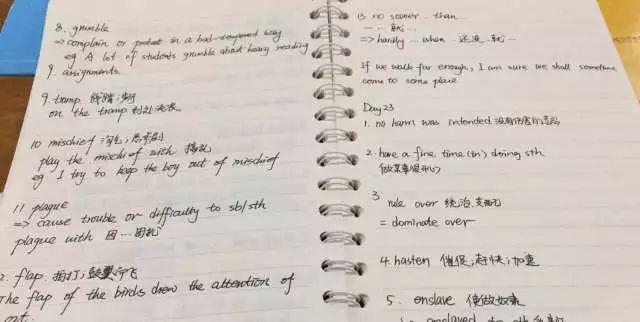 8. grumble
=> complain or protest in a bad-tempered way
eg A lot of students grumble about heavy reading
9. assignments.
9. tramp
on the tramp 到处流浪
10 mischief 淘气;恶作剧
play the mischief with 搞乱
eg I try to keep the boy out of mischief
11 plague
=> cause trouble or difficulty to sb/sth
plague with 因…困扰
2. flap. 拍打;鼓翼而飞
The flap of the birds drew the attention of
cat.
13. no sooner … than…
一…就…
=> hardly … when … 还没…就…
If we walk far enough, I am sure we shall sometime
come to some place.
Day 23
1. no harm was intended 没有伤害的意思
2. have a fine time (in) doing sth
(做某事很开心)
3 rule over 统治,支配
= dominate over
4. hasten 催促;赶快;加速
5. enslave 使做奴隶
enslaved to sth